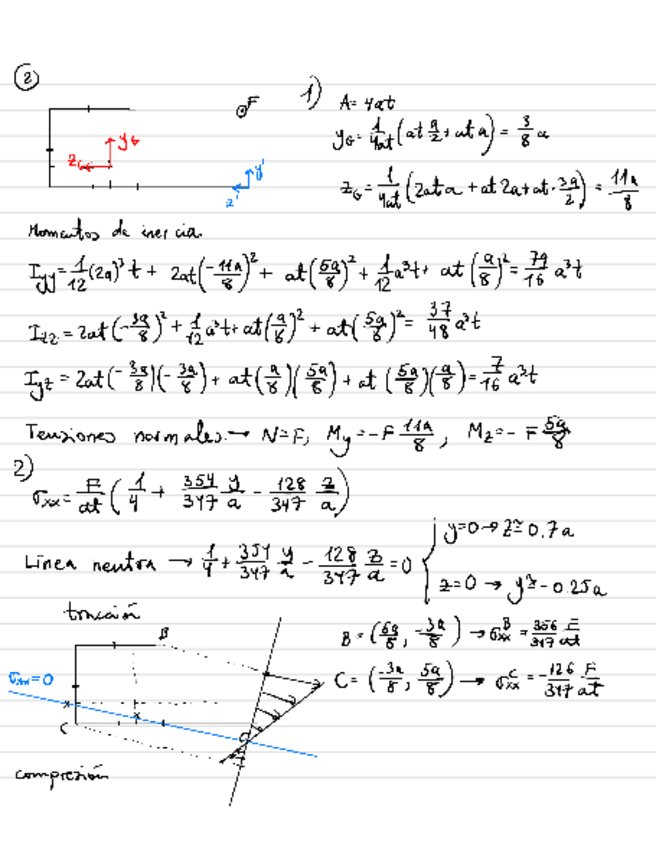 2
1)
F
A= 4at
y_G
z_G
y_G = 1/4at (at a/2 + at a) = 3/8 a
y'
z'
z_G = 1/4at (2at a + at 2a + at · 3a/2) = 11a/8
Momentos de inercia
I_yy = 1/12 (2a)³ t + 2at (-11a/8)² + at (5a/8)² + 1/12 a³t + at (a/8)² = 79/16 a³t
I_zz = 2at (-3a/8)² + 1/12 a³t + at (a/8)² + at (5a/8)² = 37/48 a³t
I_yz = 2at (-3a/8)(-3a/8) + at (a/8)(5a/8) + at (5a/8)(a/8) = 7/16 a³t
Tensiones normales → N=F, My = -F 11a/8, Mz = - F 5a/8
2)
σxx = F/at (1/4 + 354/347 y/a - 128/347 z/a)
Línea neutra → 1/4 + 354/347 y/a - 128/347 z/a = 0 { y=0 → z ≃ 0.7a
z=0 → y ≃ -0.25a
tracción
B
B = (5a/8, -3a/8) → σxx^B = 356/347 F/at
σxx=0
C = (-3a/8, 5a/8) → σxx^C = -126/347 F/at
C
compresión